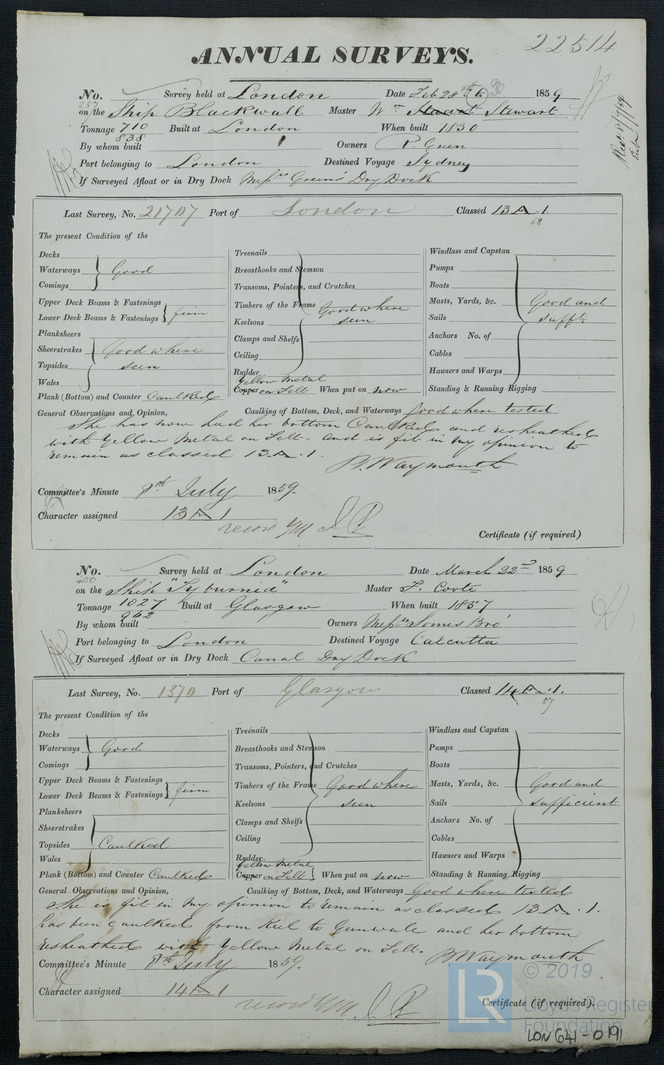 22514
ANNUAL SURVEYS.
No. Survey held at London Date Feb 28th 1859
on the Ship Blackwall Master Wm Stewart
Tonnage 710 Built at London When built 1850
838
By whom built Owners R Green
Port belonging to London Destined Voyage Sydney
If Surveyed Afloat or in Dry Dock Messrs Green's Dry Dock
Last Survey, No. 21707 Port of London Classed 13 A.1.
58
The present Condition of the
Decks
Waterways Good
Comings
Upper Deck Beams & Fastenings
Lower Deck Beams & Fastenings firm
Planksheers
Sheerstrakes Good where
Topsides seen
Wales
Plank (Bottom) and Counter Caulked
Treenails
Breasthooks and Stemson
Transoms, Pointers, and Crutches
Timbers of the Frame Good where
Keelsons seen
Clamps and Shelfs
Ceiling
Rudder
Yellow Metal
Copper on Felt When put on now
Windlass and Capstan
Pumps
Boats
Masts, Yards, &c. Good and
Sails sufft
Anchors No. of
Cables
Hawsers and Warps
Standing & Running Rigging
General Observations and Opinion, Caulking of Bottom, Deck, and Waterways good where tested
She has now had her bottom Caulked and resheathed
with Yellow Metal on Felt. and is fit in my opinion to
remain as classed 13.A.1.
B. Waymouth
Committee's Minute 8th July 1859.
Character assigned 13 A 1
record YM
Certificate (if required)
No. Survey held at London Date March 22d 1859
on the Ship "Tyburnia" Master F. Coote
Tonnage 1027 Built at Glasgow When built 1857
962
By whom built Owners Messrs Somes Bro'
Port belonging to London Destined Voyage Calcutta
If Surveyed Afloat or in Dry Dock Canal Dry Dock
Last Survey, No. 1370 Port of Glasgow Classed 14 A.1.
57
The present Condition of the
Decks
Waterways Good
Comings
Upper Deck Beams & Fastenings
Lower Deck Beams & Fastenings firm
Planksheers
Sheerstrakes
Topsides Caulked
Wales
Plank (Bottom) and Counter Caulked
Treenails
Breasthooks and Stemson
Transoms, Pointers, and Crutches
Timbers of the Frame Good where
Keelsons seen
Clamps and Shelfs
Ceiling
Rudder
Yellow Metal
Copper on Felt When put on now
Windlass and Capstan
Pumps
Boats
Masts, Yards, &c. Good and
Sails sufficient
Anchors No. of
Cables
Hawsers and Warps
Standing & Running Rigging
General Observations and Opinion, Caulking of Bottom, Deck, and Waterways Good where tested
She is fit in my opinion to remain as classed 13 A.1.
has been Caulked from Keel to Gunwale and her bottom
resheathed with Yellow Metal on Felt.
B Waymouth
Committee's Minute 8th July 1859.
Character assigned 14 A 1
record YM
Certificate (if required).
© 2019
LR Lloyd's Register
Foundation
LON 641-0191